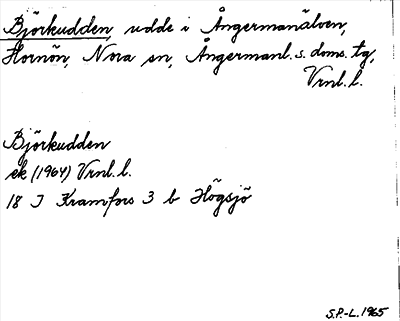 Björkudden, udde i Ångermanälven,
Hornön, Nora sn, Ångermanl. s. doms. tg,
Vrnl. l.
Björkudden
ek (1964) Vrnl. l.
18 J Kramfors 3 b Högsjö
S.P.-L. 1965